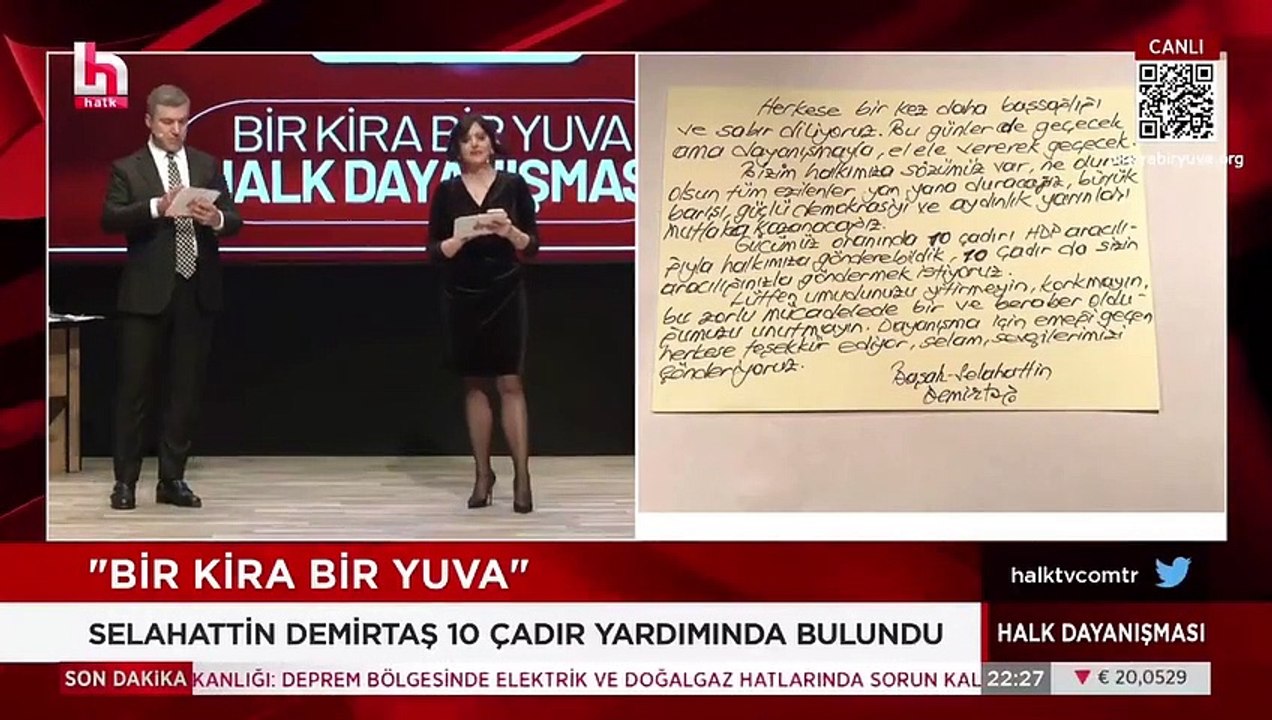 CANLI
h
halk
BİR KİRA BİR YUVA
HALK DAYANIŞMASI
birkirabiryuva.org
Herkese bir kez daha başsağlığı
ve sabır diliyoruz. Bu günler de geçecek
ama dayanışmayla, el ele vererek geçecek.
Bizim halkımıza sözümüz var, ne durumda
olsun tüm ezilenler yan yana duracağız, büyük
barışı, güçlü demokrasiyi ve aydınlık yarınları
mutlaka kazanacağız.
Gücümüz oranında 10 çadırı HDP aracılı-
ğıyla halkımıza gönderebildik, 10 çadır da sizin
aracılığınızla göndermek istiyoruz.
Lütfen umudunuzu yitirmeyin, korkmayın,
bu zorlu mücadelede bir ve beraber oldu-
ğumuzu unutmayın. Dayanışma için emeği geçen
herkese teşekkür ediyor, selam, sevgilerimizi
gönderiyoruz.
Başak-Selahattin
Demirtaş
"BİR KİRA BİR YUVA"
halktvcomtr
SELAHATTİN DEMİRTAŞ 10 ÇADIR YARDIMINDA BULUNDU
HALK DAYANIŞMASI
SON DAKİKA KANLIĞI: DEPREM BÖLGESİNDE ELEKTRİK VE DOĞALGAZ HATLARINDA SORUN KAL 22:27 € 20,0529